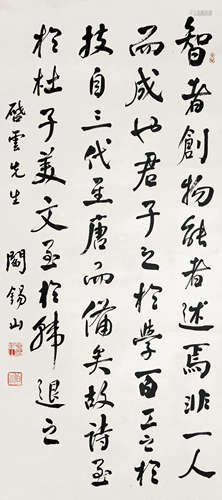 智者創物能者述焉非一人
而成也君子之於學百工之於
技自三代至唐而備矣故詩至
於杜子美文至於韓退之
啓雲先生
閻錫山